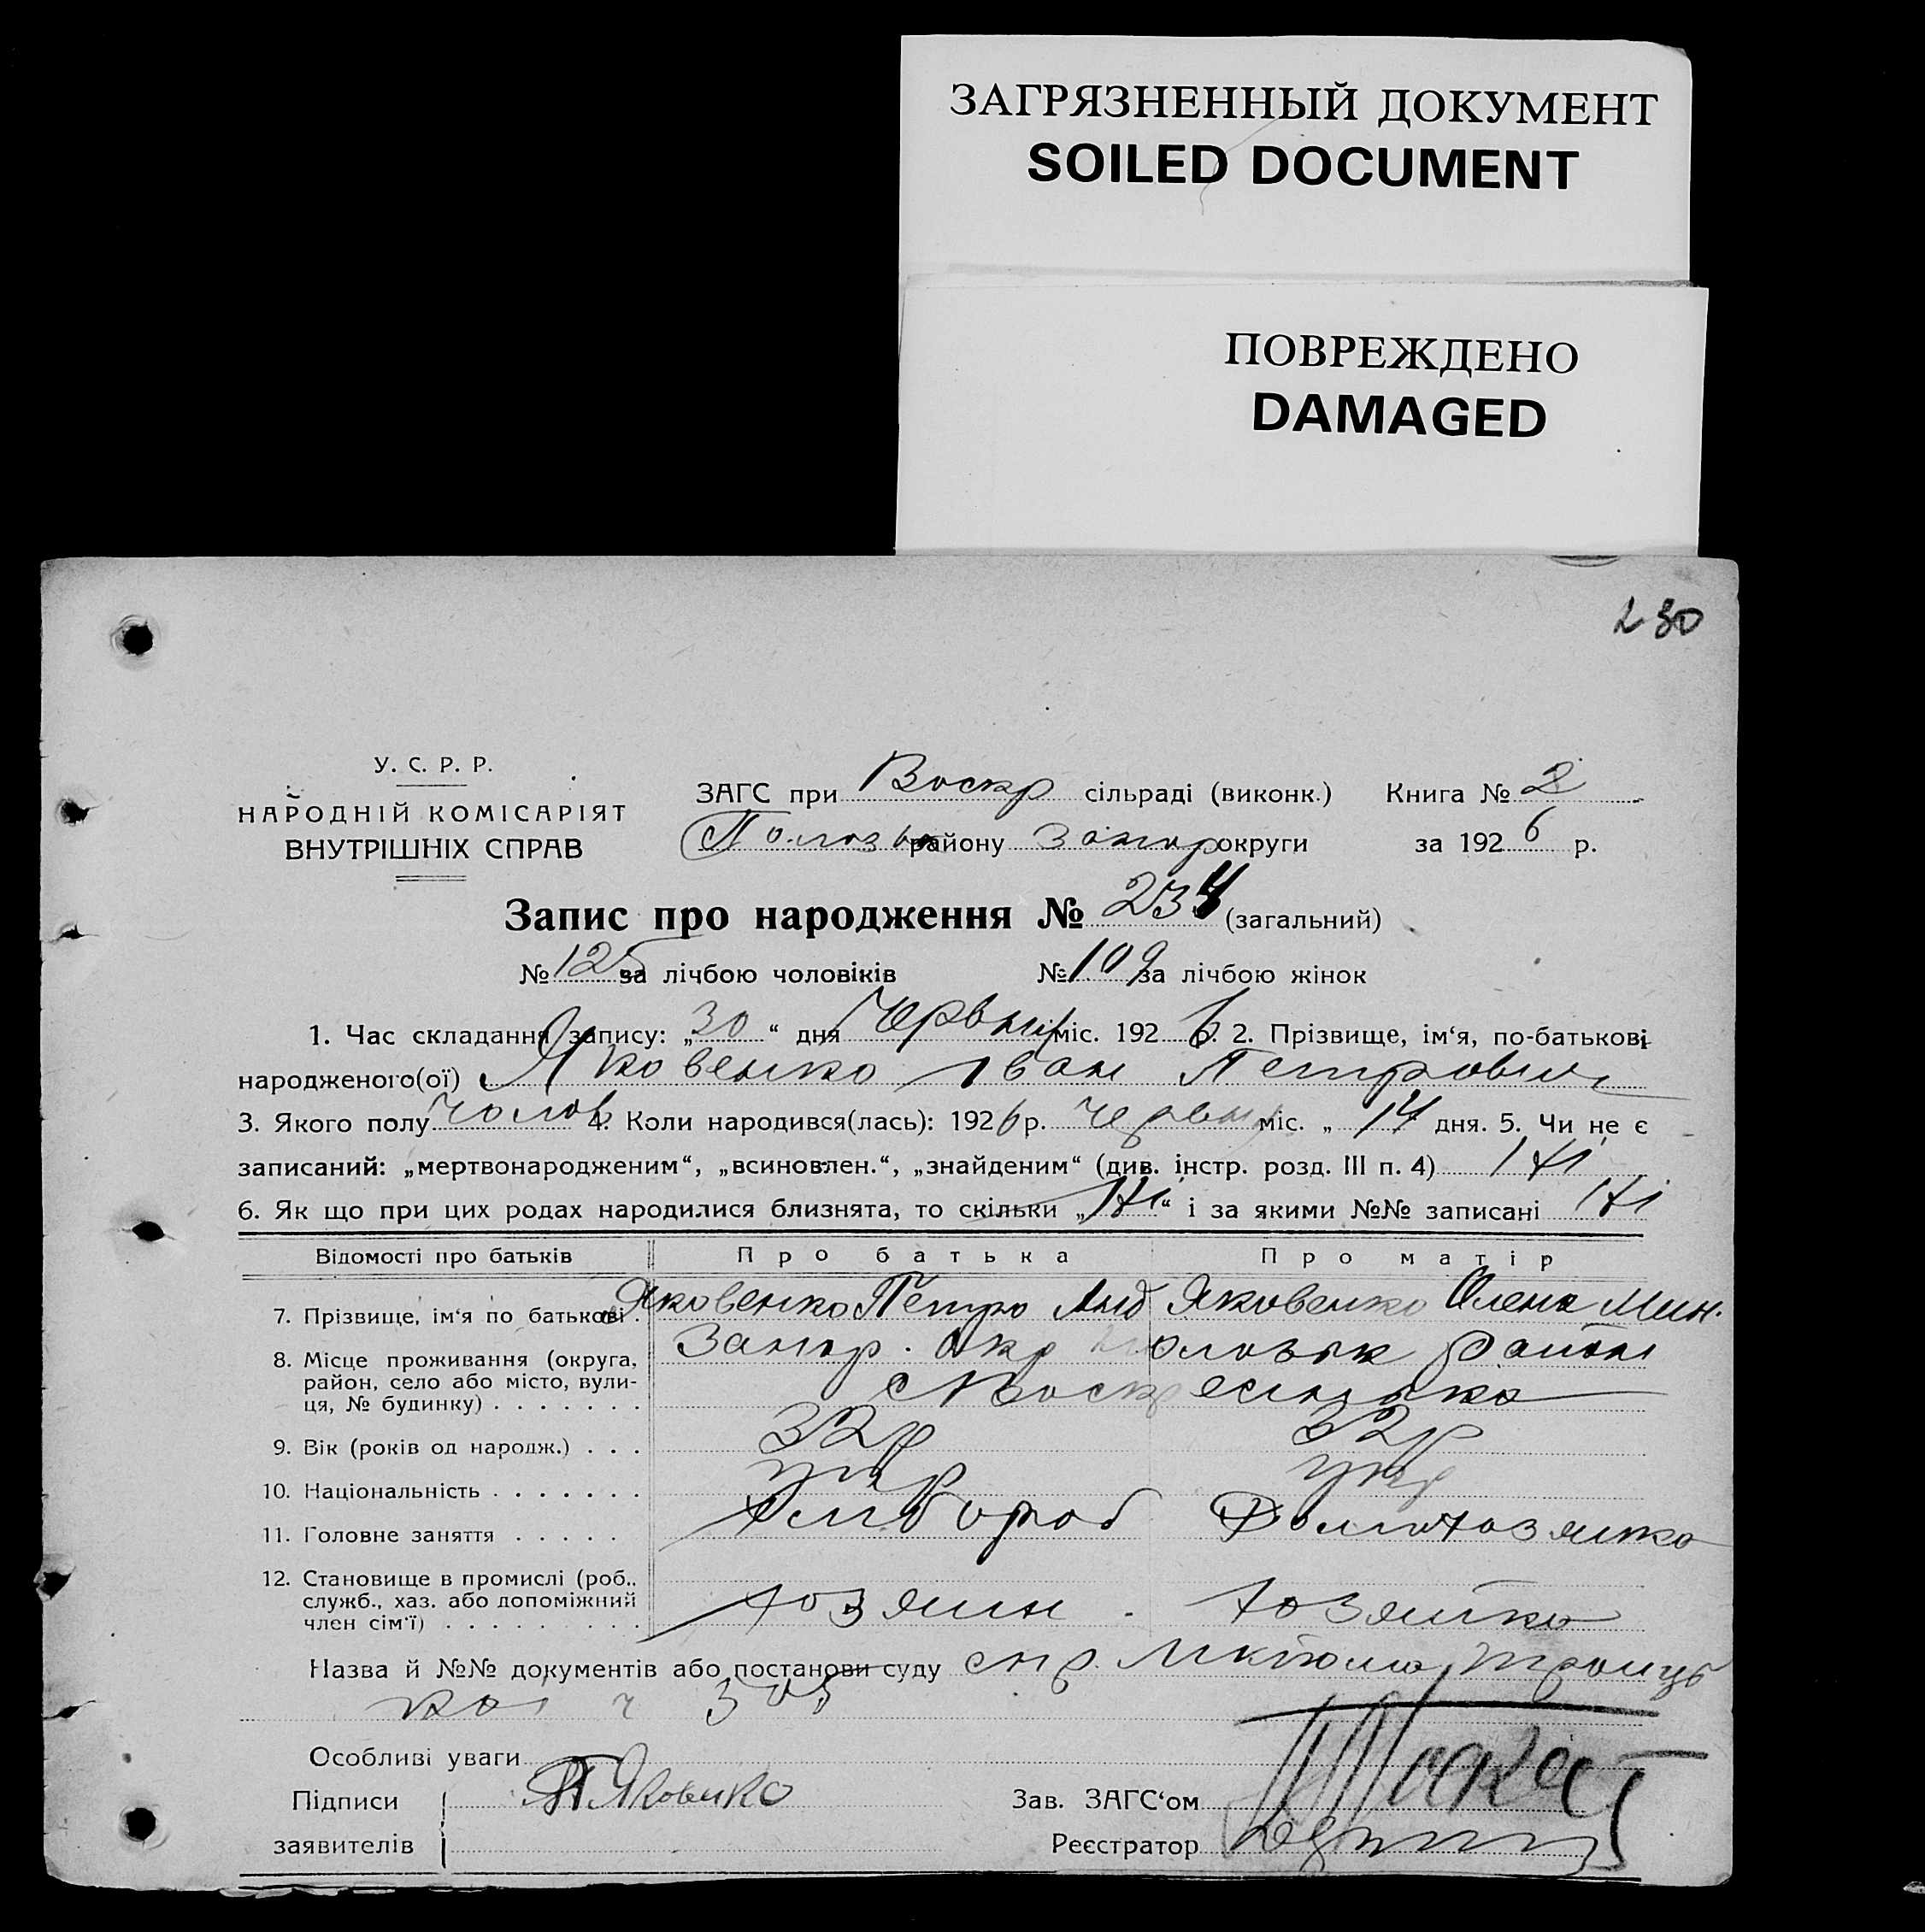 ЗАГРЯЗНЕННЫЙ ДОКУМЕНТ
SOILED DOCUMENT
ПОВРЕЖДЕНО
DAMAGED
230
У. С. Р. Р.
НАРОДНІЙ КОМІСАРІЯТ
ВНУТРІШНІХ СПРАВ
ЗАГС при Воскр сільраді (виконк.) Книга № 2
району Запор округи за 1926 р.
Запис про народження № 234 (загальний)
№ 125 за лічбою чоловіків № 109 за лічбою жінок
1. Час складання запису: „30“ дня Червня міс. 1926 р. 2. Прізвище, ім‘я, по-батькові
народженого(ої) Яковенко Іван Петрович
3. Якого полу Чолов 4. Коли народився(лась): 1926 р. Червня міс. „ 14 дня. 5. Чи не є
записаний: „мертвонародженим“, „всиновлен.“, „знайденим“ (див. інстр. розд. III п. 4) Ні
6. Як що при цих родах народилися близнята, то скільки „Ні“ і за якими №№ записані Ні
Відомості про батьків Про батька Про матір
7. Прізвище, ім‘я по батькові . Яковенко Петро Яковенко Олена Мин.
8. Місце проживання (округа, Запор. окр Пологівськ район
район, село або місто, вули- с Воскресенка
ця, № будинку) . . . . . . .
9. Вік (років од народж.) . . . 32р 32р
10. Національність . . . . . . . укр укр
11. Головне заняття . . . . . Хлібороб Домохозяйка
12. Становище в промислі (роб.,
служб., хаз. або допоміжний хозяин хозяйка
член сім‘ї) . . . . . . . . .
Назва й №№ документів або постанови суду
Особливі уваги
Підписи П Яковенко Зав. ЗАГС‘ом
заявителів Реєстратор